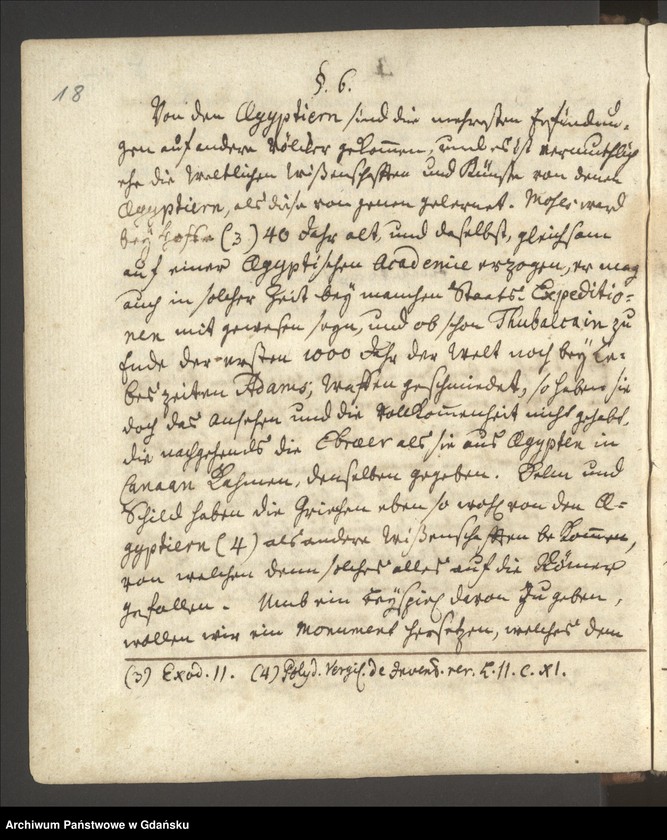 18
§. 6.
Von den Ægyptiern sind die mehresten Erfindun-
gen auf andere Völcker gekom̅en, und es ist vermuthlich
ehe die Weltlichen Wißenschafften und Künste von denen
Ægyptiern, als diese von jenen gelernet. Moses ward
bey Hofe (3) 40 Jahr alt, und daselbst, gleichsam
auf einer Ægyptischen Academie erzogen, er mag
auch in solcher Zeit bey manchen Staats-Expeditio-
nen mit gewesen seyn, und ob schon Thubalcain zu
Ende der ersten 1000 Jahr der Welt noch bey Le-
bes zeiten Adams, Waffen geschmiedet, so haben sie
doch das Ansehen und die Vollkom̅enheit nicht gehabt,
die nachgehends die Ebræer als sie aus Ægypten in
Canaan kahmen, denselben gegeben. Helm und
Schild haben die Griechen eben so wohl von den Æ-
gyptiern (4) als andere Wißenschafften bekom̅en,
von welchen denn solches alles auf die Römer
gefallen. Umb ein Beyspiel davon zu geben,
wollen wir ein Monument hersetzen, welches dem
(3) Exod. 11. (4) Polyd. Vergil. de Invent. rer. L. 11. C. XI.
Archiwum Państwowe w Gdańsku